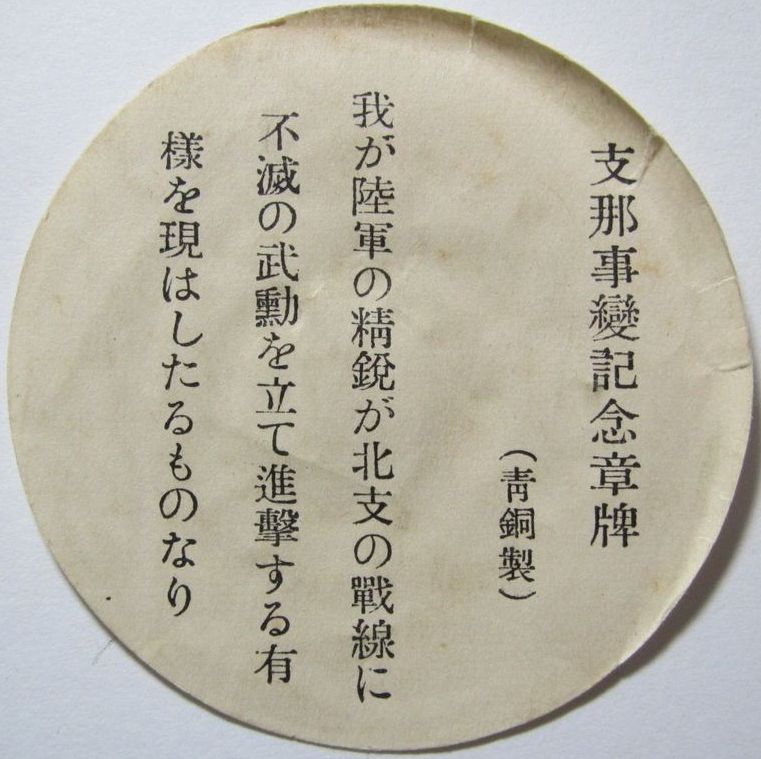 支那事變記念章牌
（靑銅製）
我が陸軍の精銳が北支の戰線に
不滅の武勳を立て進擊する有
樣を現はしたるものなり